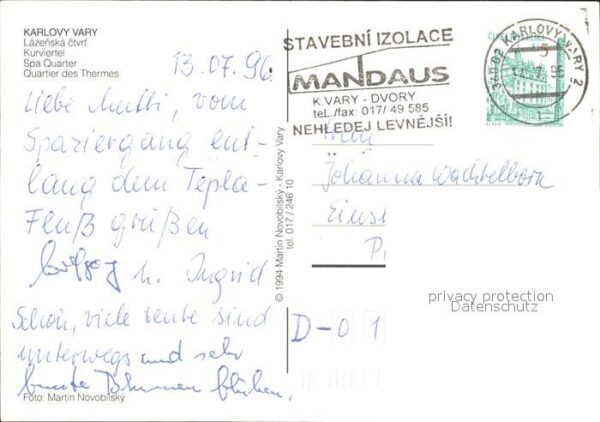 KARLOVY VARY
Lázeňská čtvrť
Kurviertel
Spa Quarter
Quartier des Thermes
13.07.96
Liebe Mutti, vom
Spaziergang ent-
lang dem Tepla-
Fluß grüßen
u. Ingrid
Schön, viele Leute sind
unterwegs und sehr
bunte Blumen blühen.
Foto: Martin Novobilský
© 1994 Martin Novobilský - Karlovy Vary
tel. 017 / 246 10
STAVEBNÍ IZOLACE
MANDAUS
K.VARY - DVORY
tel./fax: 017/ 49 585
NEHLEDEJ LEVNĚJŠÍ!
360 02 KARLOVY VARY 2
5
Johanna Wachtelborn
Einst
D-01
privacy protection
Datenschutz